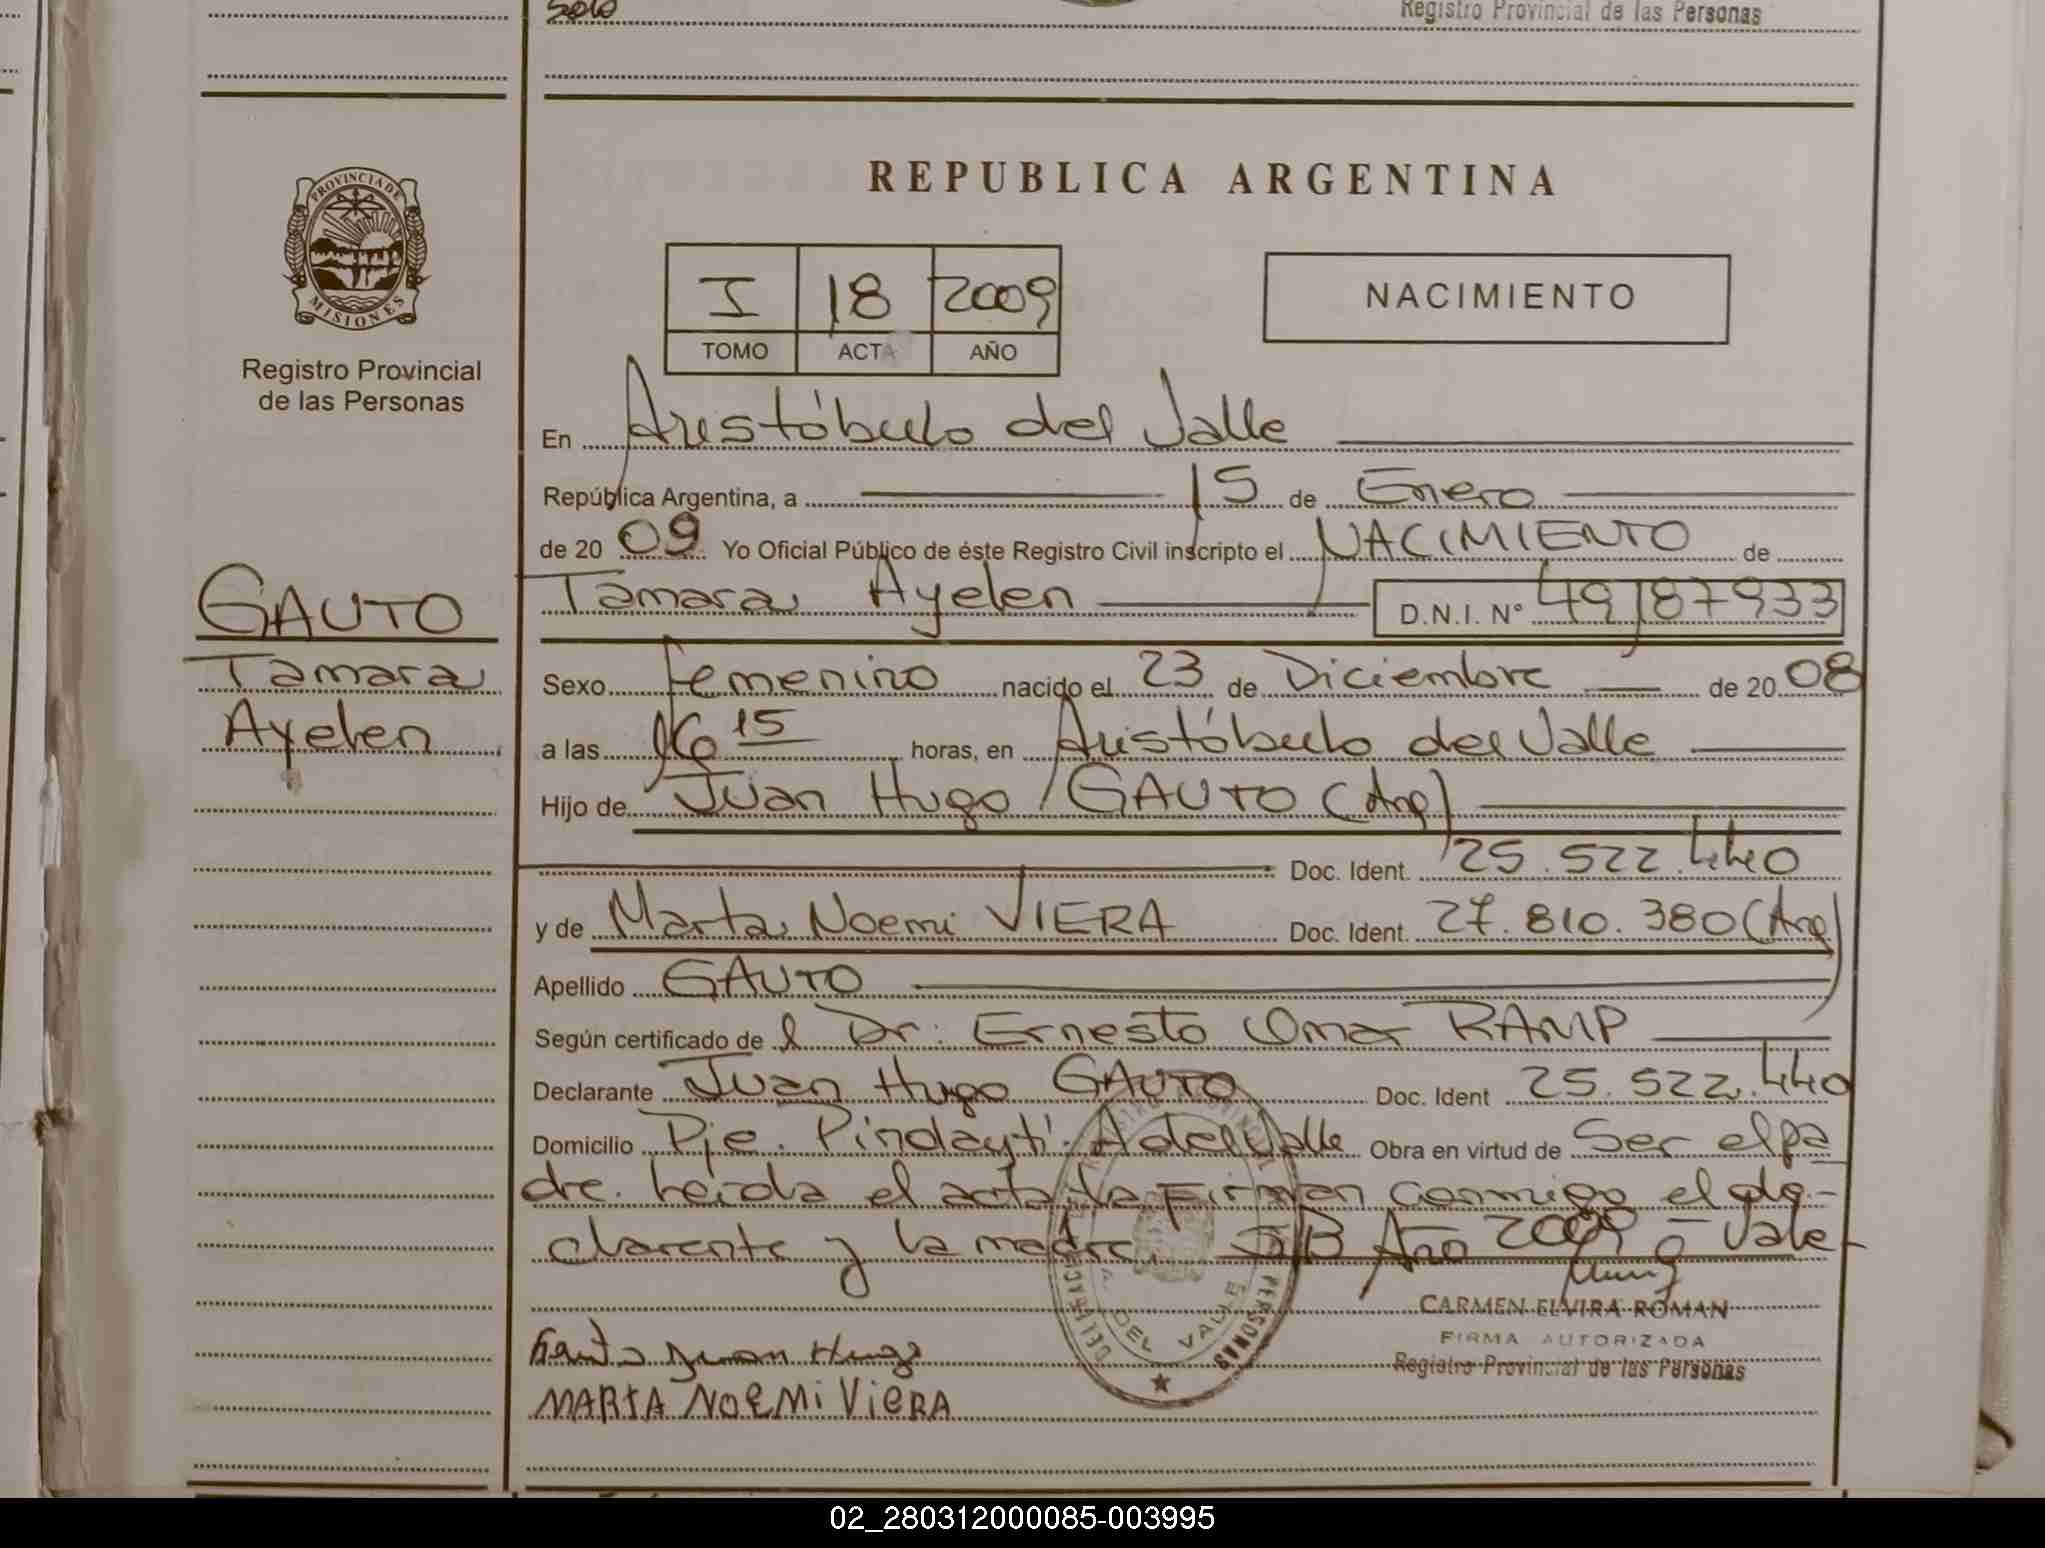 solo
Registro Provincial de las Personas
PROVINCIA DE
MISIONES
Registro Provincial
de las Personas
GAUTO
Tamara
Ayelen
REPUBLICA ARGENTINA
I 18 2009
TOMO ACTA AÑO
NACIMIENTO
En Aristóbulo del Valle
República Argentina, a 15 de Enero
de 20 09 Yo Oficial Público de éste Registro Civil inscripto el NACIMIENTO de
Tamara Ayelen D.N.I. Nº 49187933
Sexo Femenino nacido el 23 de Diciembre de 20 08
a las 16 15 horas, en Aristóbulo del Valle
Hijo de Juan Hugo GAUTO (Arg)
Doc. Ident. 25.522.440
y de Marta Noemi VIERA Doc. Ident. 27.810.380 (Arg)
Apellido GAUTO
Según certificado de l Dr. Ernesto Omar RAMP
Declarante Juan Hugo GAUTO Doc. Ident 25.522.440
Domicilio Pje. Pindayti. A del Valle Obra en virtud de Ser el pa
dre. Leida el acta la Firman conmigo el de-
clarante y la madre. Año 2009 - Vale-
CARMEN ELVIRA ROMAN
FIRMA AUTORIZADA
Registro Provincial de las Personas
Gauto Juan Hugo
MARTA NOEMI VIERA
A. DEL VALLE
PERSONAS
02_280312000085-003995